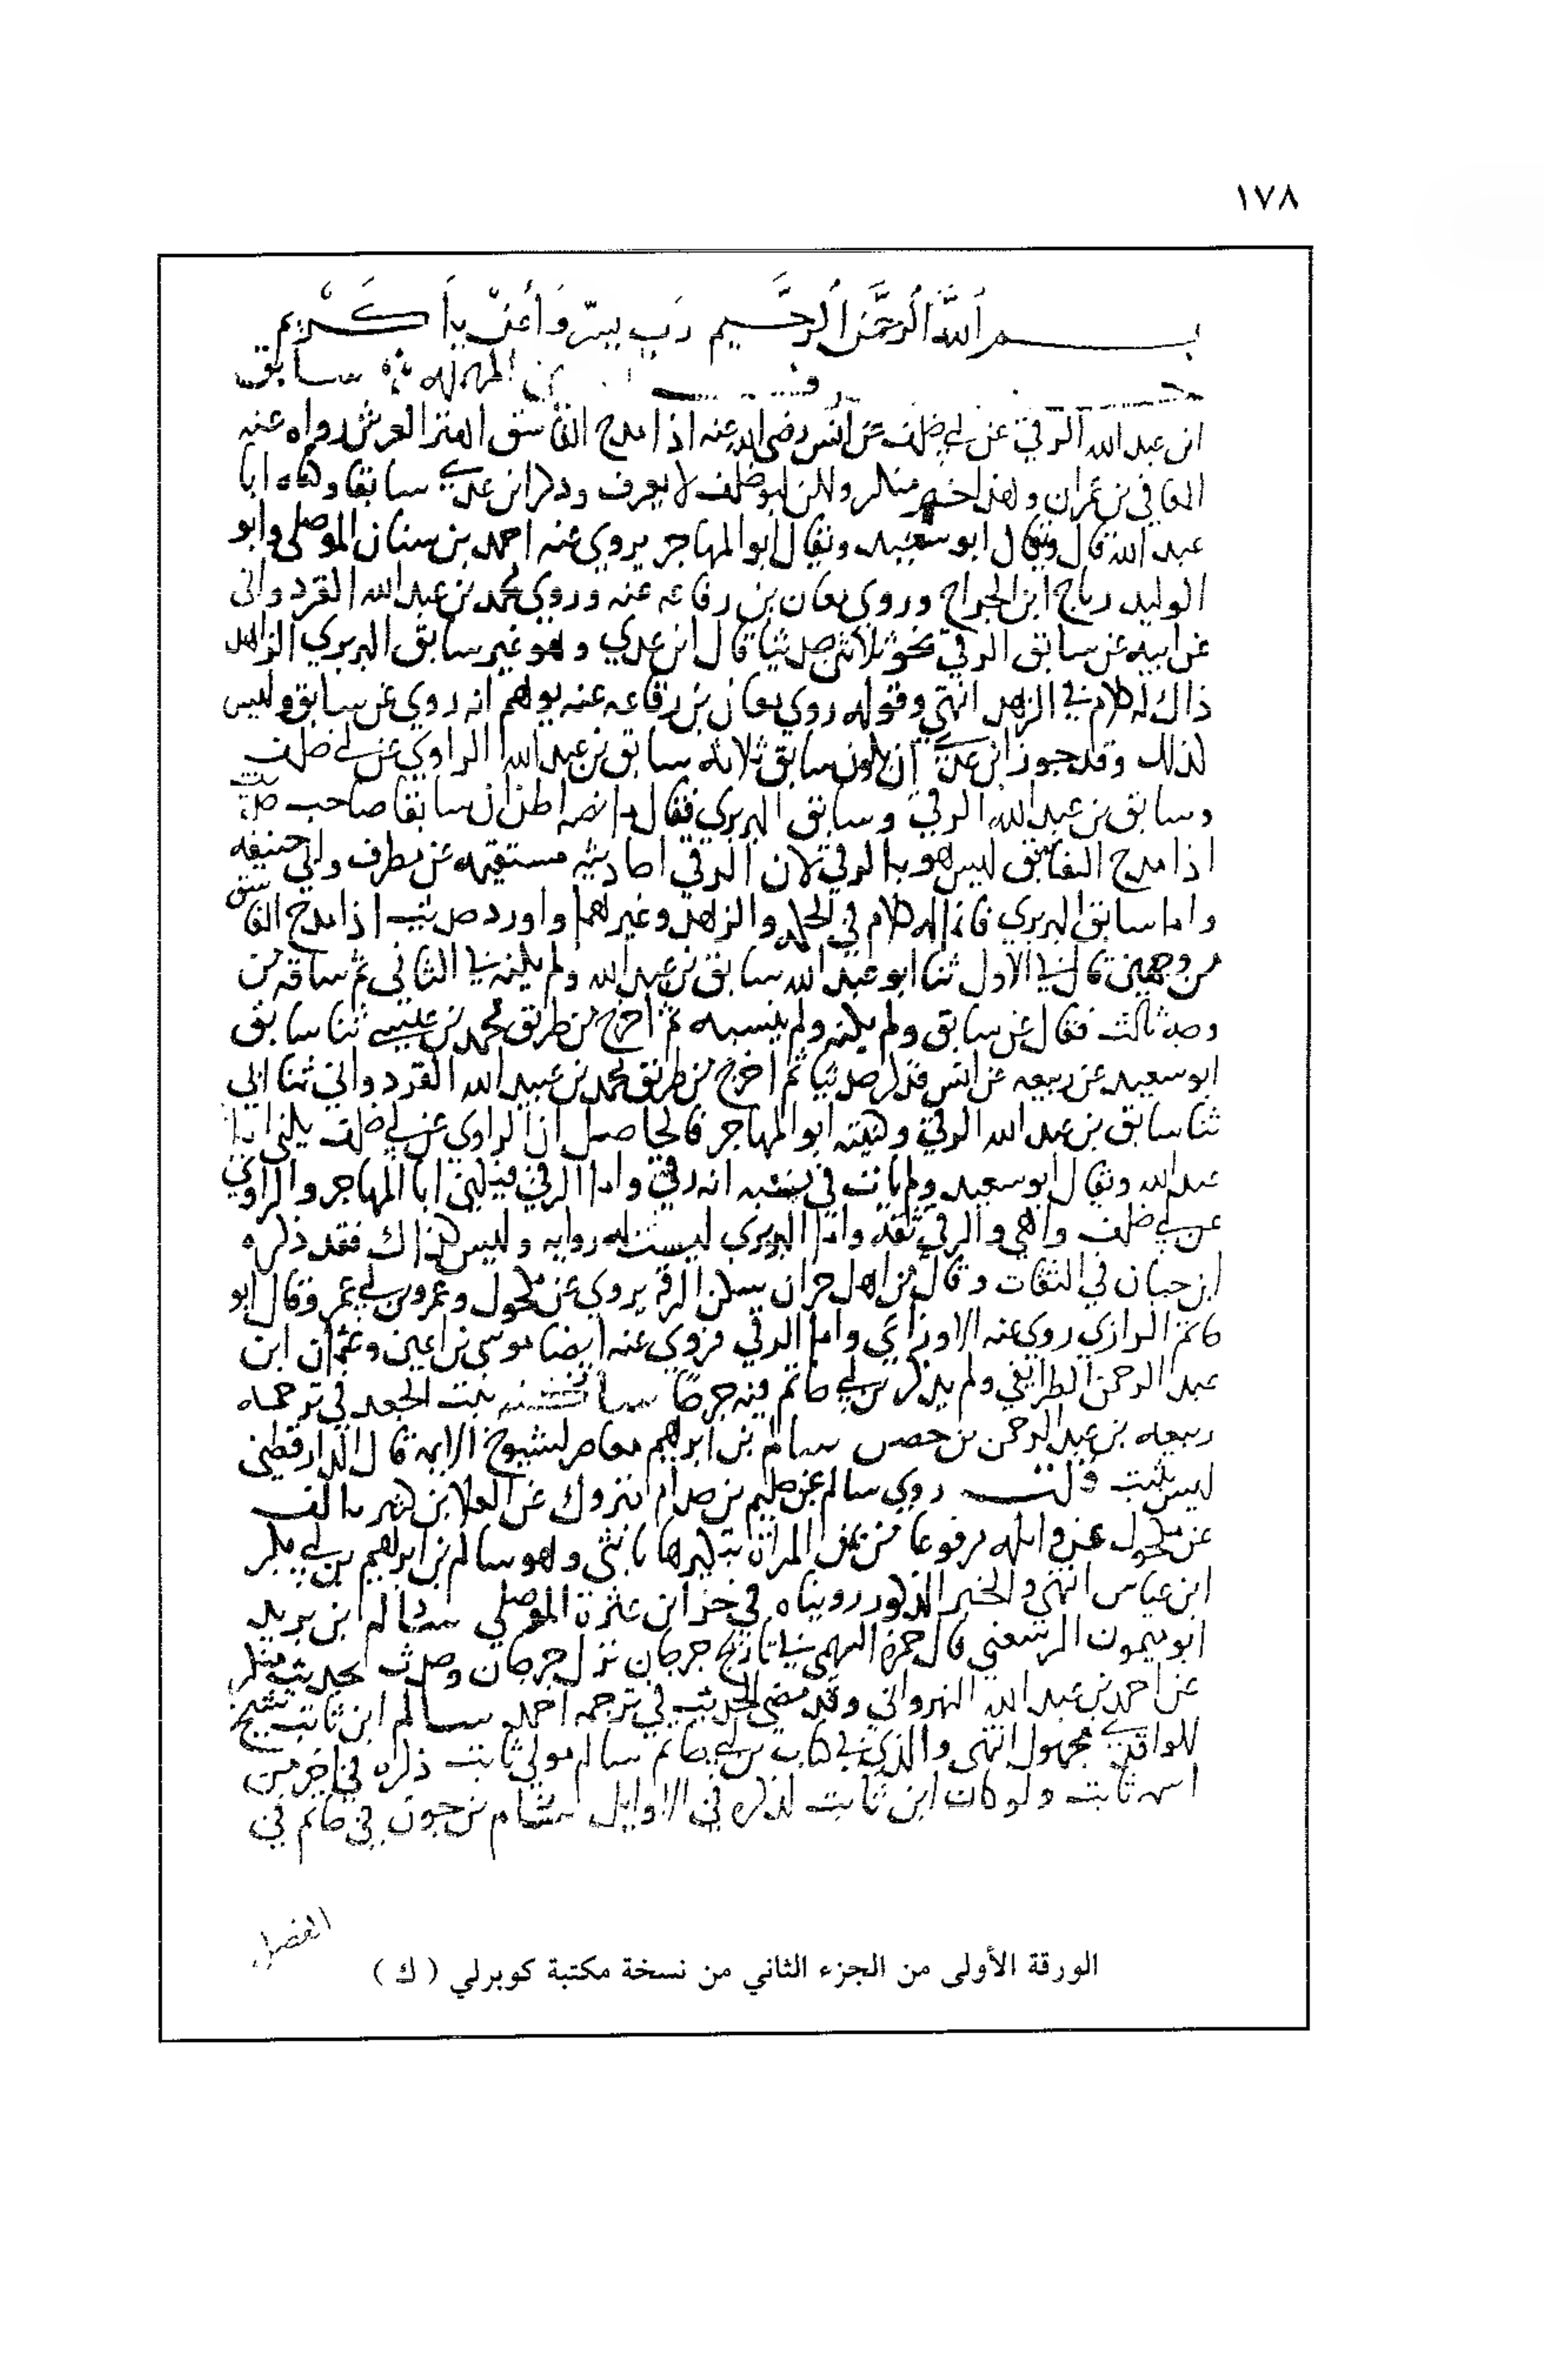 ١٧٨
بسم الله الرحمن الرحيم رب يسر وأعن يا كريم
سابق
ابن عبد الله الرقي عن ابي خلف عن انس رضي الله عنه اذا مدح الفاسق اهتز العرش رواه عنه
المعافى بن عمران وهذا خبر منكر ولكن ابو خلف لا يعرف وذكر ابن عدي سابقا وكناه ابا
عبد الله قال ويقال ابو سعيد ويقال ابو المهاجر يروي عنه احمد بن سنان الموصلي وابو
الوليد رباح ابن الجراح وروى معان بن رفاعه عنه وروي محمد بن عبيد الله القردواني
عن ابيه عن سابق الرقي نحو ثلاثين حديثا قال ابن عدي وهو غير سابق البربري الزاهد
ذاك له كلام في الزهد انتهى وقوله روى معان بن رفاعه عنه يوهم انه روي عن سابق وليس
كذلك وقد جوز ابن عدي ان يكون سابق ثلاثة سابق بن عبد الله الراوي عن ابي خلف
وسابق بن عبد الله الرقي وسابق البربري فقال اظن ان سابقا صاحب حديث
اذا مدح الفاسق ليس هو بالرقي لان الرقي احاديثه مستقيمه عن مطرف وابي حنيفه
واما سابق البربري فانما له كلام في الحكمه والزهد وغيرهما واورد حديث اذا مدح الفاسق
من وجهين قال في الاول ثنا ابو عبد الله سابق بن عبد الله ولم يكنه في الثاني ثم ساقه من
وجه ثالث فقال عن سابق ولم يكنه ولم ينسبه ثم اخرج من طريق محمد بن ثنا سابق
ابو سعيد عن ربيعه عن انس فذكر حديثا ثم اخرج من طريق محمد بن عبيد الله القردواني ثنا ابي
ثنا سابق بن عبد الله الرقي وكنيته ابو المهاجر فالحاصل ان الراوي عن ابي خلف يكنى ابا
عبد الله ويقال ابو سعيد ولم يات في نسبه انه رقي واما الرقي فيكنى ابا المهاجر والراوي
عن ابي خلف واهي والرقي ثقه واما البربري ليست له روايه وليس كذاك فقد ذكره
ابن حبان في الثقات وقال من اهل حران سكن الرقه يروي عن مكحول وعمرو بن ابي عمرو وقال ابو
حاتم الرازي روى عنه الاوزاعي واما الرقي فروى عنه ايضا موسى بن اعين وعثمان ابن
عبد الرحمن الطرايفي ولم يذكر بن ابي حاتم فيه جرحا بنت الجعد في ترجمه
ربيعه بن عبد الرحمن بن حصن سالم بن ابرهيم معاصر لشيوخ الايمه قال الدارقطني
ليس بثبت قلت روي سالم عن حكيم بن حزام متروك عن العلا بن كثير
عن مكحول عن واثله مرفوعا من يمن المراة تبكيرها بانثى وهو سالم بن ابرهيم بن ابي بكر
ابن عياس انتهى والخبر المذكور رويناه في جزء ابن عثرة الموصلي سالم ابن بريد
ابو ميمون الرسعني قال حمزه السهمي في تاريخ جرجان نزل جرجان وحدث بحديث منكر
عن احمد بن عبد الله النهرواني وقد مضى الحديث في ترجمه احمد سالم ابن ثابت شيخ
للواقدي مجهول انتهى والذي في كتاب بن ابي حاتم سالم مولى ثابت ذكره في اخر من
اسمه ولو كان ابن ثابت لذكره في الاوايل في
المفضل
الورقة الأولى من الجزء الثاني من نسخة مكتبة كوبرلي ( ك )